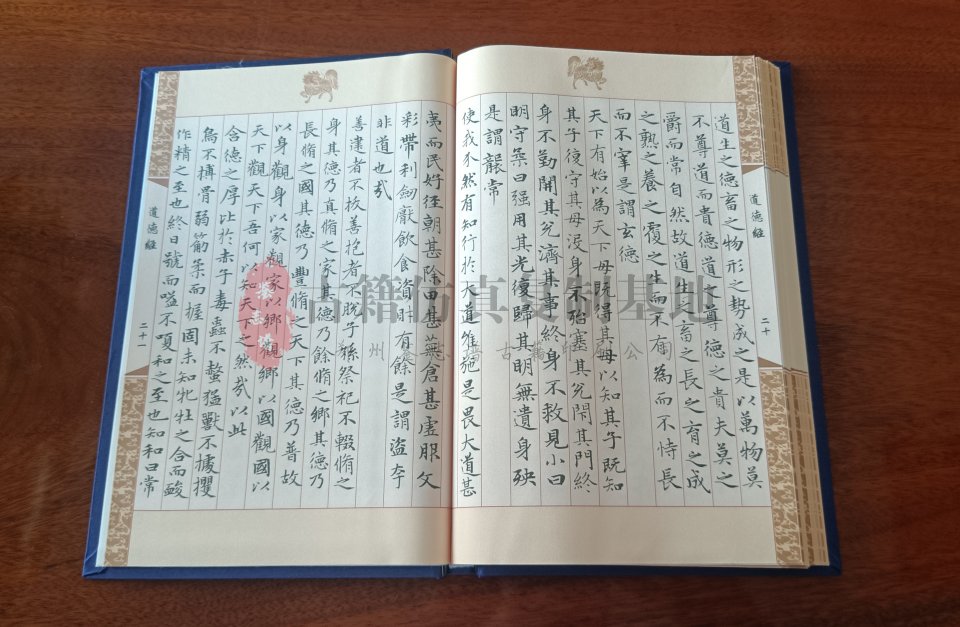 道德經
二十
道生之德畜之物形之势成之是以萬物莫
不尊道而貴德道之尊德之貴夫莫之
爵而常自然故道生之畜之長之育之成
之熟之養之覆之生而不有為而不恃長
而不宰是謂玄德
天下有始以為天下母既得其母以知其子既知
其子復守其母沒身不殆塞其兌閇其門終
身不勤開其兌濟其事終身不救見小曰
明守柔曰强用其光復歸其明無遺身殃
是謂襲常
使我介然有知行於大道惟施是畏大道甚
夷而民好徑朝甚除田甚蕪倉甚虛服文
彩帶利劒厭飲食資財有餘是謂盜夸
非道也哉
善建者不拔善抱者不脫子孫祭祀不輟脩之
身其德乃真脩之家其德乃餘脩之鄉其德乃
長脩之國其德乃豐脩之天下其德乃普故
以身觀身以家觀家以鄉觀鄉以國觀國以
天下觀天下吾何以知天下之然哉以此
含德之厚比於赤子毒蟲不螫猛獸不據攫
鳥不搏骨弱筋柔而握固未知牝牡之合而酸
作精之至也終日號而嗌不嗄和之至也知和曰常
道德經
二十一
古籍仿真复制基地